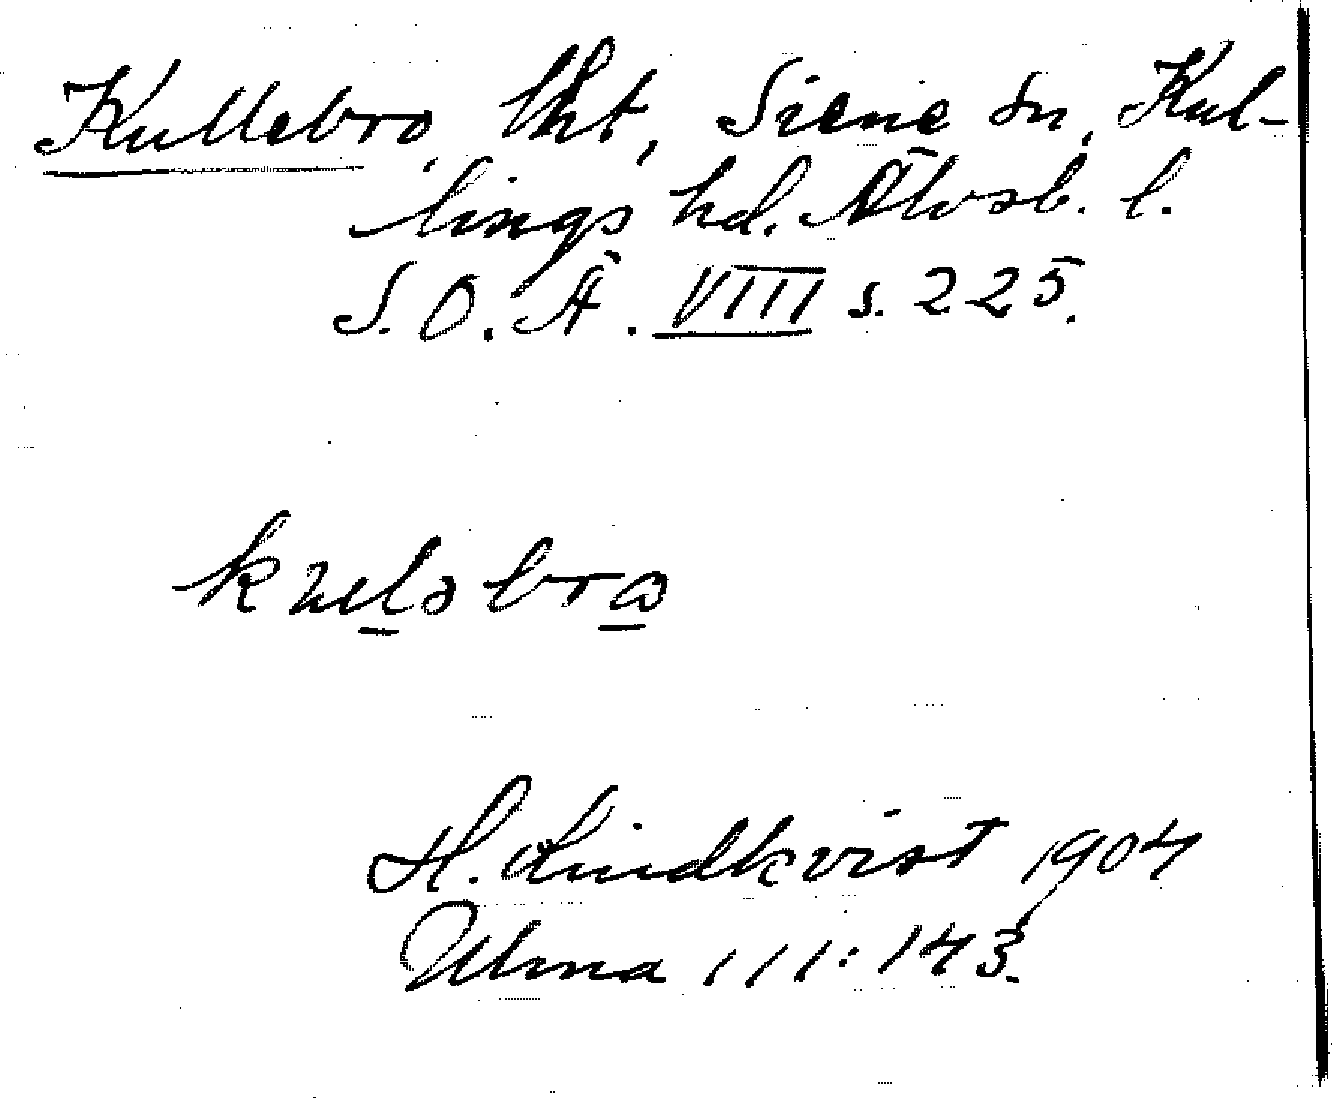 Kullebro, lht, Siene sn, Kul-
lings hd. Älvsb. l.
S. O. Ä. VIII s. 225.
kuləbra
H. Lindkvist 1904
Ulma 111:143.